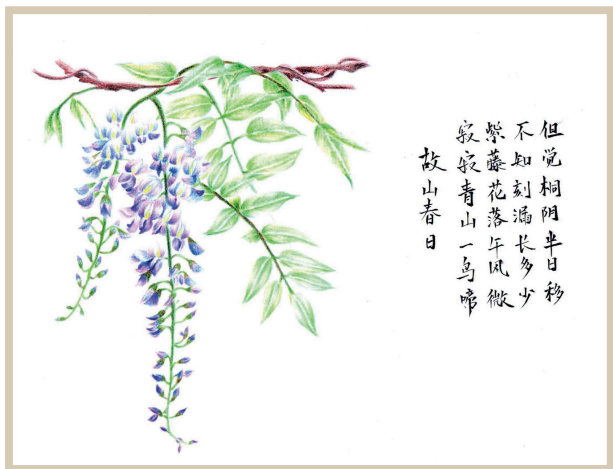 但觉桐阴半日移
不知刻漏长多少
紫藤花落午风微
寂寂青山一鸟啼
故山春日